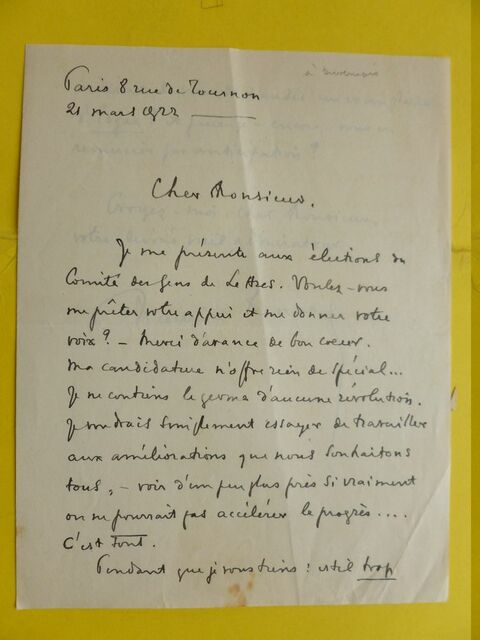 Paris 8 rue de Tournon
21 mars 1922
Cher Monsieur.
Je me présente aux élections du
Comité des gens de Lettres. Voulez-vous
me prêter votre appui et me donner votre
voix? - Merci d'avance de bon coeur.
Ma candidature n'offre rien de spécial...
Je ne contiens le germe d'aucune révolution.
Je voudrais simplement essayer de travailler
aux améliorations que nous souhaitons
tous, - voir d'un peu plus près si vraiment
on ne pourrait pas accélérer le progrès....
C'est tout.
Pendant que je vous tiens: est-il trop